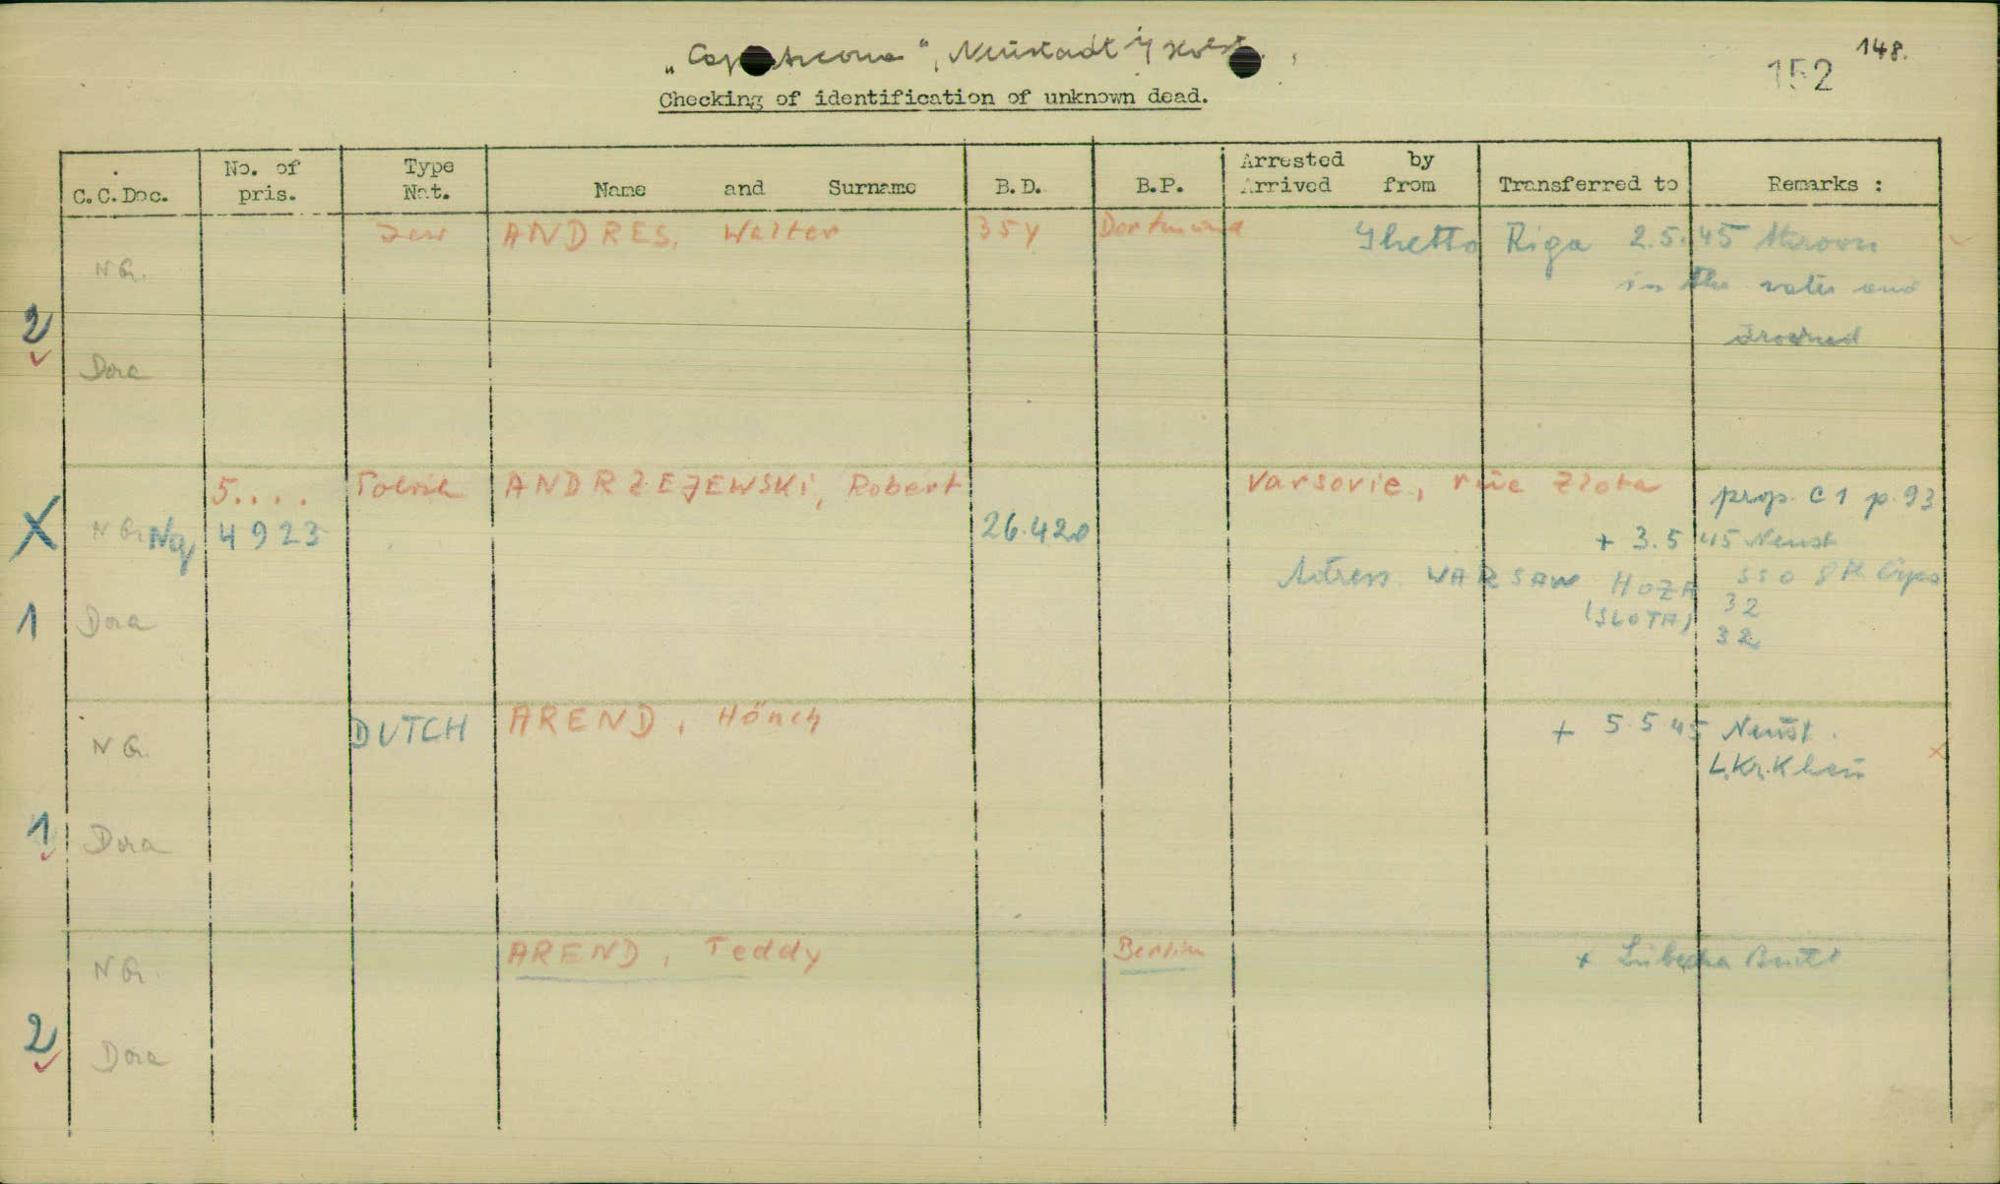 „Cap Arcona", Neustadt i/Holst.
148.
152
Checking of identification of unknown dead.
C.C.Doc. No. of pris. Type Nat. Name and Surname B.D. B.P. Arrested by Arrived from Transferred to Remarks :
Jew ANDRES, Walter 35y Dortmund Ghetto Riga 2.5.45 thrown
NG. in the water and
2
drowned
Dora
5.... Polish ANDRZEJEWSKI, Robert Varsovie, rue Zlota prop. C1 p.93
X NG. Ng 4923 26.4.20 + 3.5.45 Neust
Adress WARSAW HOZA 32
(SLOTA) 32
1 Dora
DUTCH AREND, Hönch + 5.5.45 Neust.
NG. L.Kr.Khaus
1 Dora
AREND, Teddy Berlin + Lübecka Bucht
NG.
2
Dora